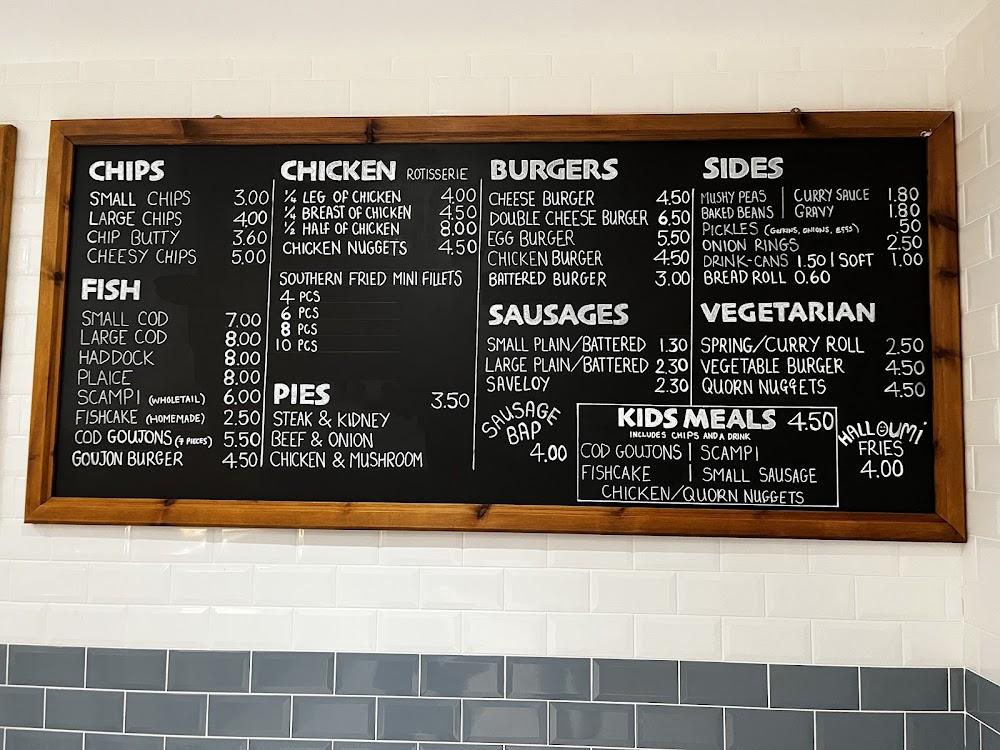 CHIPS
SMALL CHIPS 3.00
LARGE CHIPS 4.00
CHIP BUTTY 3.60
CHEESY CHIPS 5.00
FISH
SMALL COD 7.00
LARGE COD 8.00
HADDOCK 8.00
PLAICE 8.00
SCAMPI (WHOLETAIL) 6.00
FISHCAKE (HOMEMADE) 2.50
COD GOUJONS (7 PIECES) 5.50
GOUJON BURGER 4.50
CHICKEN ROTISSERIE
¼ LEG OF CHICKEN 4.00
¼ BREAST OF CHICKEN 4.50
½ HALF OF CHICKEN 8.00
CHICKEN NUGGETS 4.50
SOUTHERN FRIED MINI FILLETS
4 PCS
6 PCS
8 PCS
10 PCS
PIES 3.50
STEAK & KIDNEY
BEEF & ONION
CHICKEN & MUSHROOM
BURGERS
CHEESE BURGER 4.50
DOUBLE CHEESE BURGER 6.50
EGG BURGER 5.50
CHICKEN BURGER 4.50
BATTERED BURGER 3.00
SAUSAGES
SMALL PLAIN/BATTERED 1.30
LARGE PLAIN/BATTERED 2.30
SAVELOY 2.30
SAUSAGE
BAP
4.00
SIDES
MUSHY PEAS | CURRY SAUCE 1.80
BAKED BEANS | GRAVY 1.80
PICKLES (GERKINS, ONIONS, EGGS) .50
ONION RINGS 2.50
DRINK-CANS 1.50 | SOFT 1.00
BREAD ROLL 0.60
VEGETARIAN
SPRING/CURRY ROLL 2.50
VEGETABLE BURGER 4.50
QUORN NUGGETS 4.50
KIDS MEALS 4.50
INCLUDES CHIPS AND A DRINK
COD GOUJONS | SCAMPI
FISHCAKE | SMALL SAUSAGE
CHICKEN/QUORN NUGGETS
HALLOUMI
FRIES
4.00